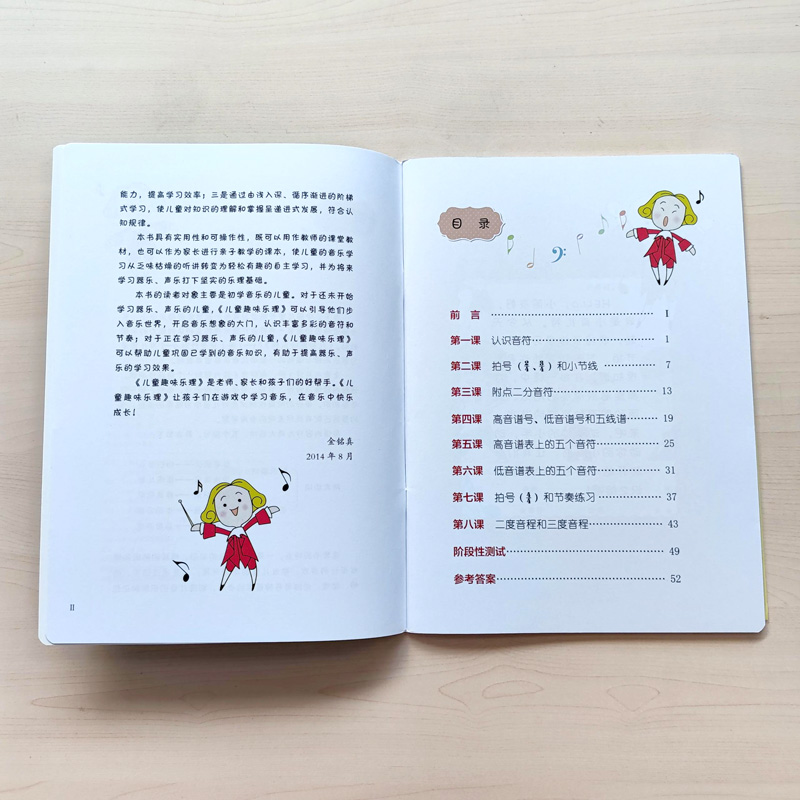 能力，提高学习效率；三是通过由浅入深、循序渐进的阶梯
式学习，使儿童对知识的理解和掌握呈递进式发展，符合认
知规律。
本书具有实用性和可操作性，既可以用作教师的课堂教
材，也可以作为家长进行亲子教学的课本，使儿童的音乐学
习从乏味枯燥的听讲转变为轻松有趣的自主学习，并为将来
学习器乐、声乐打下坚实的乐理基础。
本书的读者对象主要是初学音乐的儿童。对于还未开始
学习器乐、声乐的儿童，《儿童趣味乐理》可以引导他们步
入音乐世界，开启音乐想象的大门，认识丰富多彩的音符和
节奏；对于正在学习器乐、声乐的儿童，《儿童趣味乐理》
可以帮助儿童巩固已学到的音乐知识，有助于提高器乐、声
乐的学习效果。
《儿童趣味乐理》是老师、家长和孩子们的好帮手。《儿
童趣味乐理》让孩子们在游戏中学习音乐，在音乐中快乐
成长！
金铭真
2014 年 8 月
II
目 录
前 言 ………… I
第一课 认识音符 ………… 1
第二课 拍号（2/4、3/4）和小节线 ………… 7
第三课 附点二分音符 ………… 13
第四课 高音谱号、低音谱号和五线谱 ………… 19
第五课 高音谱表上的五个音符 ………… 25
第六课 低音谱表上的五个音符 ………… 31
第七课 拍号（4/4）和节奏练习 ………… 37
第八课 二度音程和三度音程 ………… 43
阶段性测试 ………… 49
参考答案 ………… 52